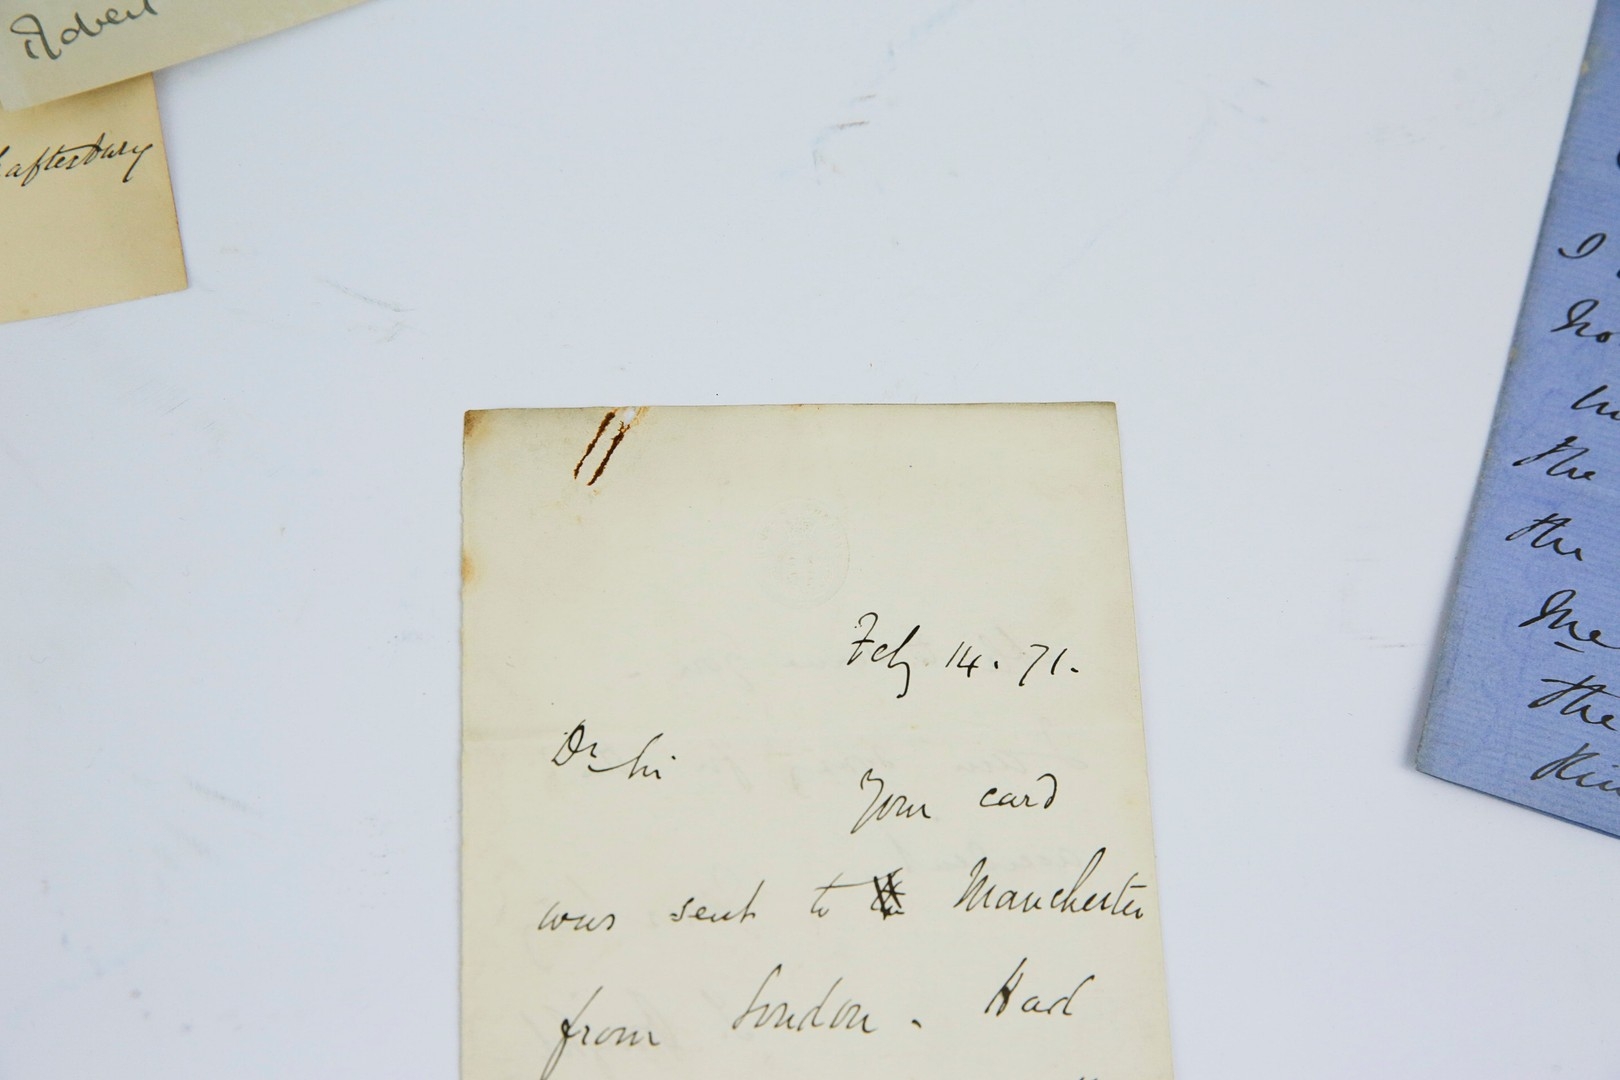 Robert
haftesbury
Feby 14. 71.
Dr Sir
Your card
was sent to Manchester
from London. Had
I
no
the
the
Me
the